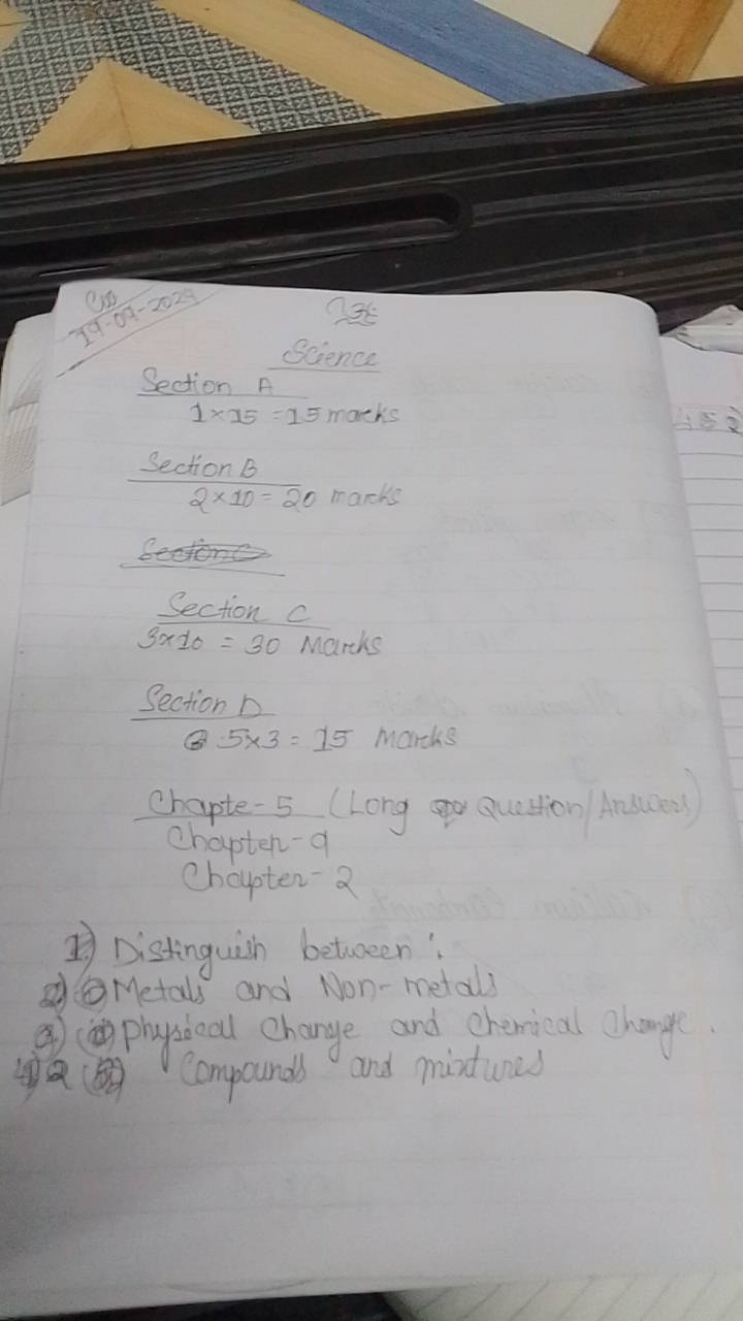 CW
19-07-2024
Science
Section A
1×15 = 15 marks
Section B
2×10 = 20 marks
Section C
Section C
3×10 = 30 Marks
Section D
5×3 = 15 Marks
Chapte-5 (Long Question/Answers)
Chapter-9
Chapter-2
1) Distinguish between :
2) Metals and Non-metals
3) Physical Change and Chemical Change.
4) Compounds and mixtures